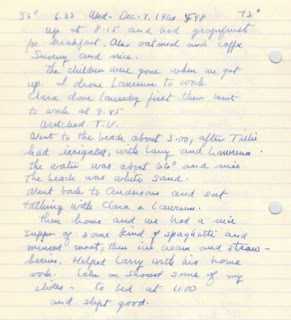 56° 6.33 Wed. Dec. 7, 1960 $98 72°
up at 8:15 and had grapefruit
for breakfast. Also oatmeal and coffee
Sunny and nice.
The children were gone when we got
up. I drove Laurence to work
Clara drove laundry first then went
to work at 9:45
Watched T.V.
Went to the beach about 3:00, after Tillie
had irrigated, with Larry and Laurence.
The water was about 66° and nice
The beach was white sand.
Went back to Andersons and sat
talking with Clara & Laurence.
Then home and we had a nice
supper of some kind of spaghetti and
minced meat, then ice cream and straw-
berries. Helped Larry with his home
work. Later on showed some of my
slides. to bed at 11:00
and slept good.